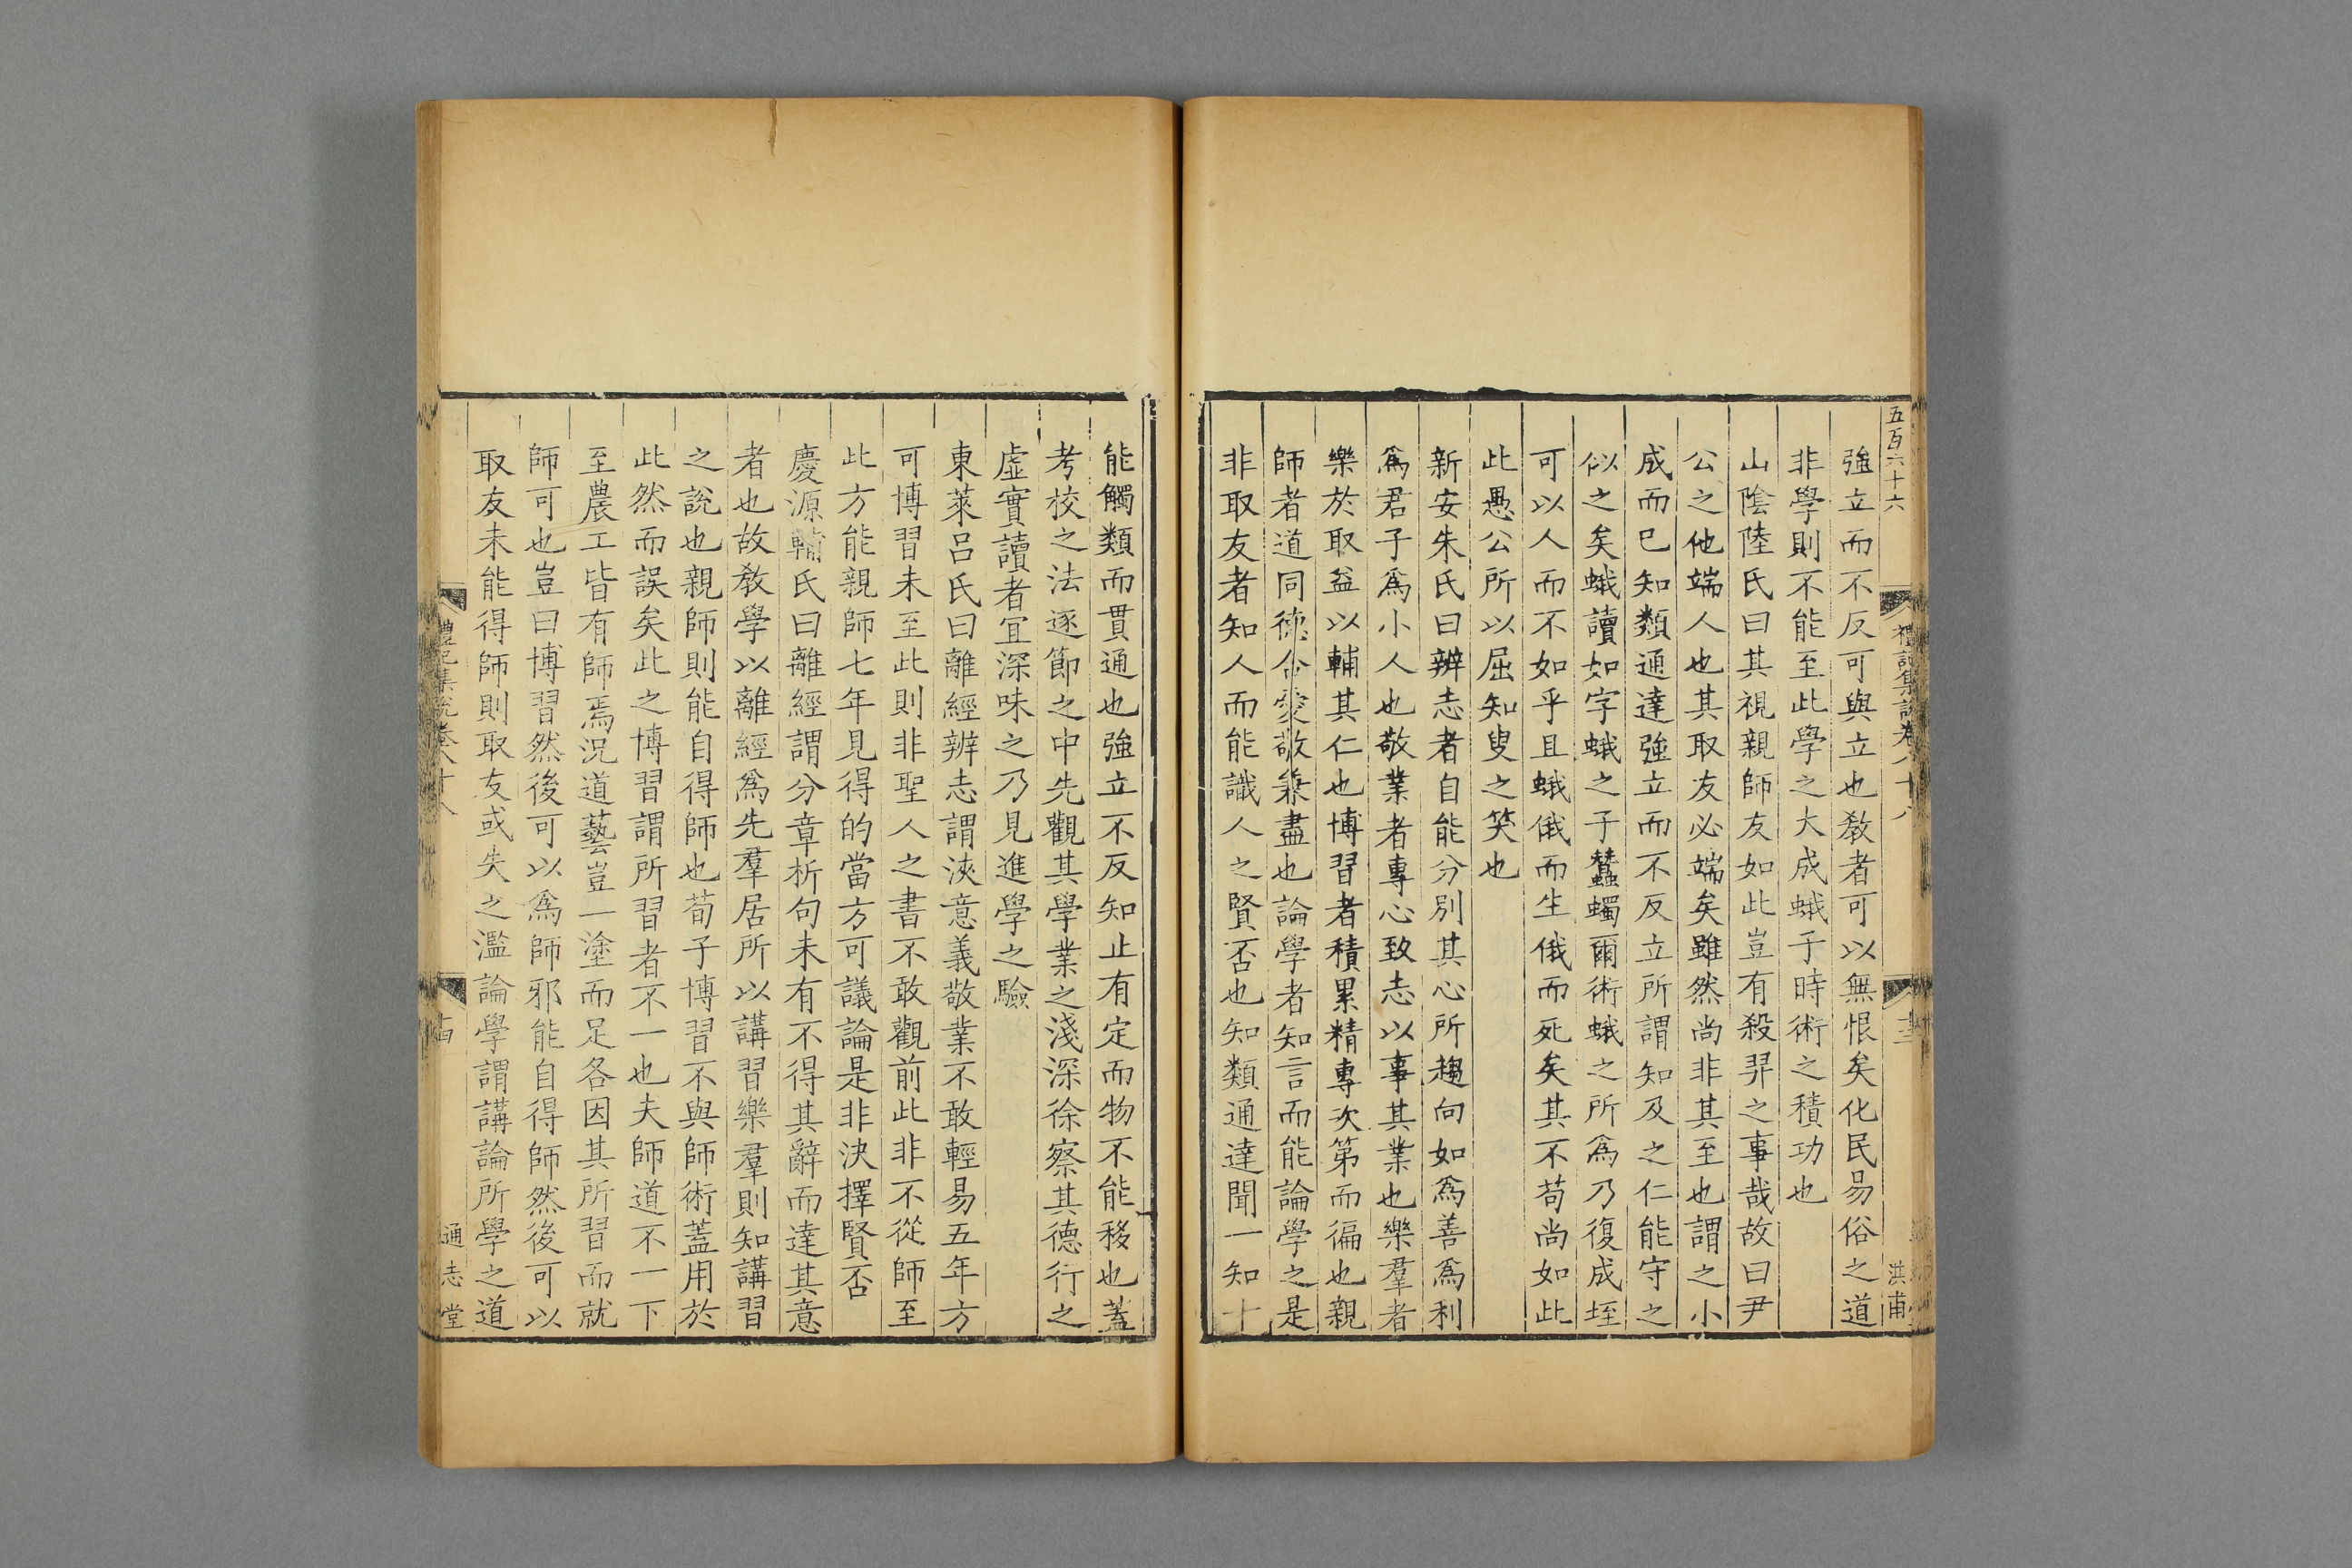 五百六十六
禮記集說卷八十八
十三
洪甫
強立而不反可與立也敎者可以無恨矣化民易俗之道
非學則不能至此學之大成蛾子時術之積功也
山陰陸氏曰其視親師友如此豈有殺羿之事哉故曰尹
公之他端人也其取友必端矣雖然尚非其至也謂之小
成而已知類通達強立而不反立所謂知及之仁能守之
似之矣蛾讀如字蛾之子蠶蠋爾術蛾之所爲乃復成垤
可以人而不如乎且蛾俄而生俄而死矣其不苟尚如此
此愚公所以屈知叟之笑也
新安朱氏曰辨志者自能分別其心所趨向如爲善爲利
爲君子爲小人也敬業者專心致志以事其業也樂羣者
樂於取益以輔其仁也博習者積累精專次第而徧也親
師者道同德合愛敬兼盡也論學者知言而能論學之是
非取友者知人而能識人之賢否也知類通達聞一知十
能觸類而貫通也強立不反知止有定而物不能移也蓋
考校之法逐節之中先觀其學業之淺深徐察其德行之
虛實讀者宜深味之乃見進學之驗
東萊呂氏曰離經辨志謂浹意義敬業不敢輕易五年方
可博習未至此則非聖人之書不敢觀前此非不從師至
此方能親師七年見得的當方可議論是非決擇賢否
慶源輔氏曰離經謂分章析句未有不得其辭而達其意
者也故敎學以離經爲先羣居所以講習樂羣則知講習
之說也親師則能自得師也荀子博習不與師術蓋用於
此然而誤矣此之博習謂所習者不一也夫師道不一下
至農工皆有師焉況道藝豈一塗而足各因其所習而就
師可也豈曰博習然後可以爲師邪能自得師然後可以
取友未能得師則取友或失之濫論學謂講論所學之道
禮記集說卷八十八
十四
通志堂